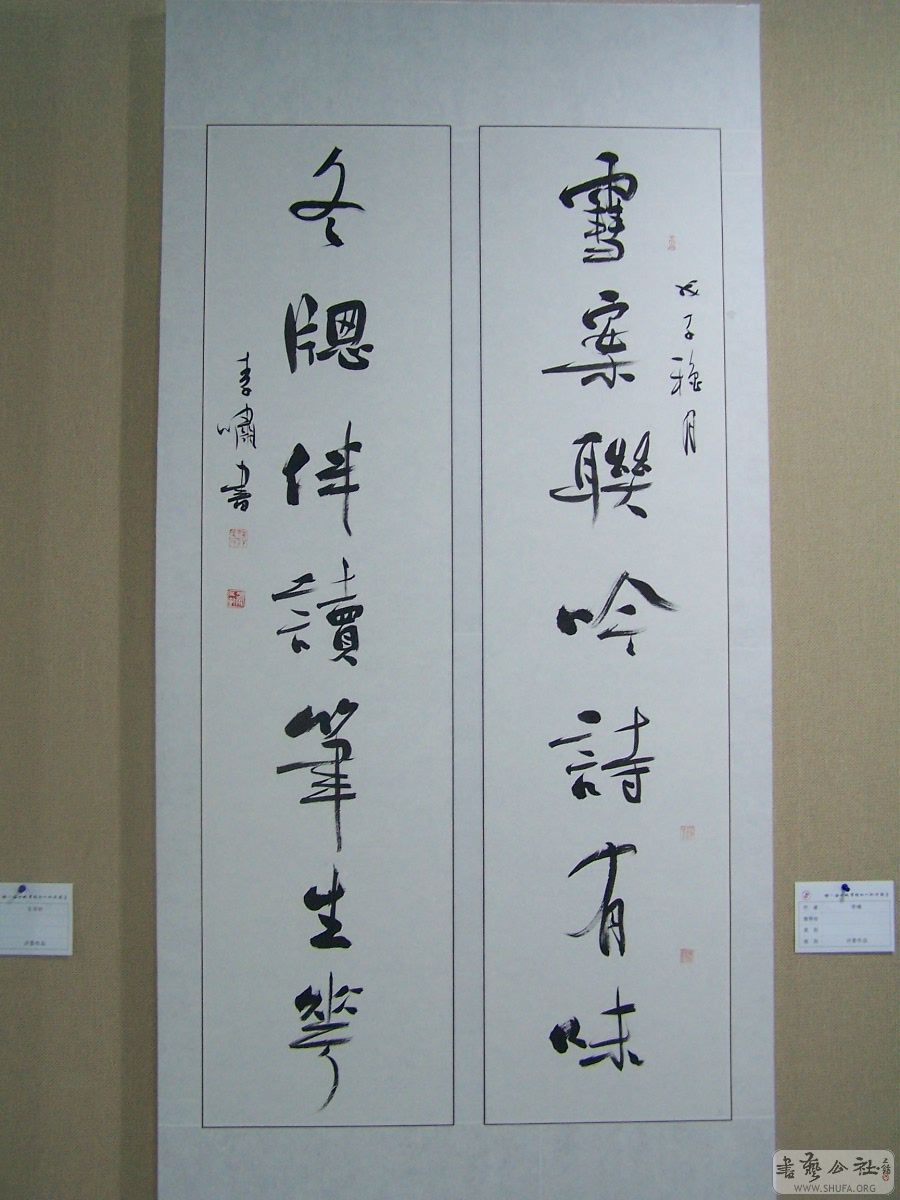 雪案聯吟詩有味
戊子穐月
冬牎伴讀筆生華
李嘯書
書藝公社
WWW.SHUFA.ORG